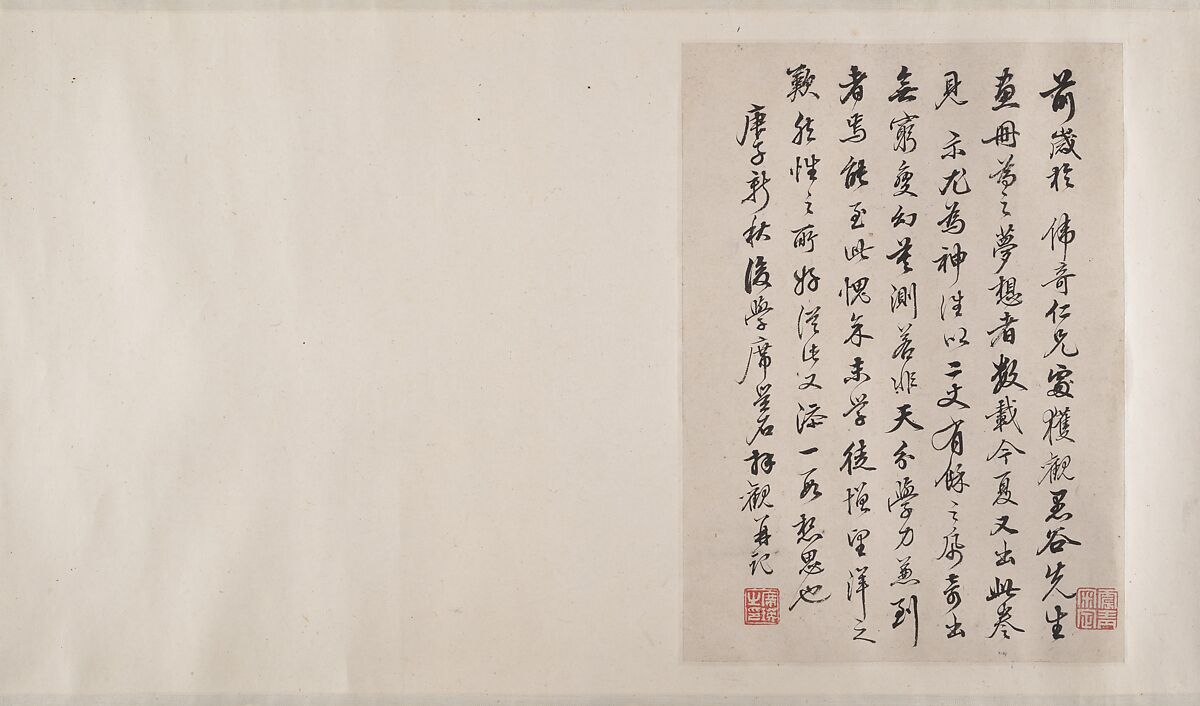 前歲於 偉奇仁兄處獲觀墨谷先生
畫冊為之夢想者數載今夏又出此卷
見 示尤為神往以二丈有餘之原奇出
無窮變幻莫測若非天分學力兼到
者焉能至此愧余末學徒增望洋之
歎然性之所好從此又添一段愁思也
庚子新秋後學席星石拜觀并記